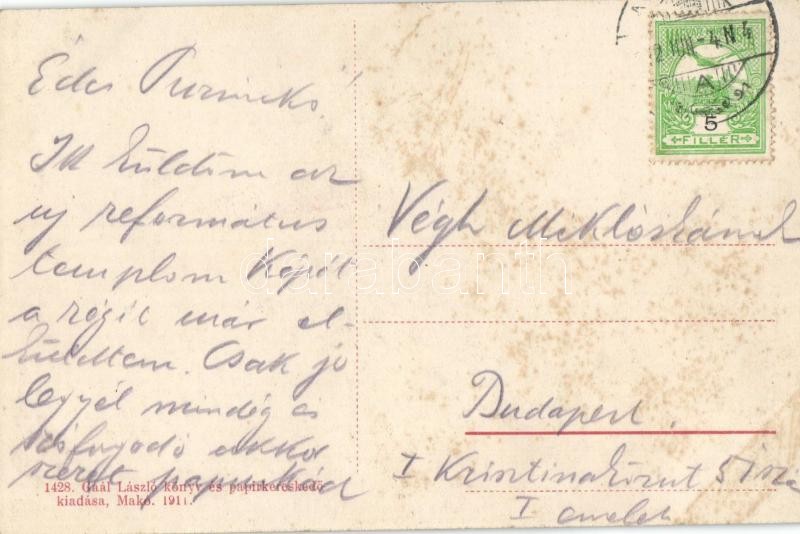 Édes
Itt küldöm az
uj református
templom képét
a régit már el-
küldtem. Csak jó
legyél mindég és
szófogadó akkor
szeret papuskád
1428. Gaál László könyv és papirkereskedő
kiadása, Makó. 1911.
5
FILLÉR
Végh Miklóskának
Budapest.
I Krisztina körut 5
I emelet
darabanth